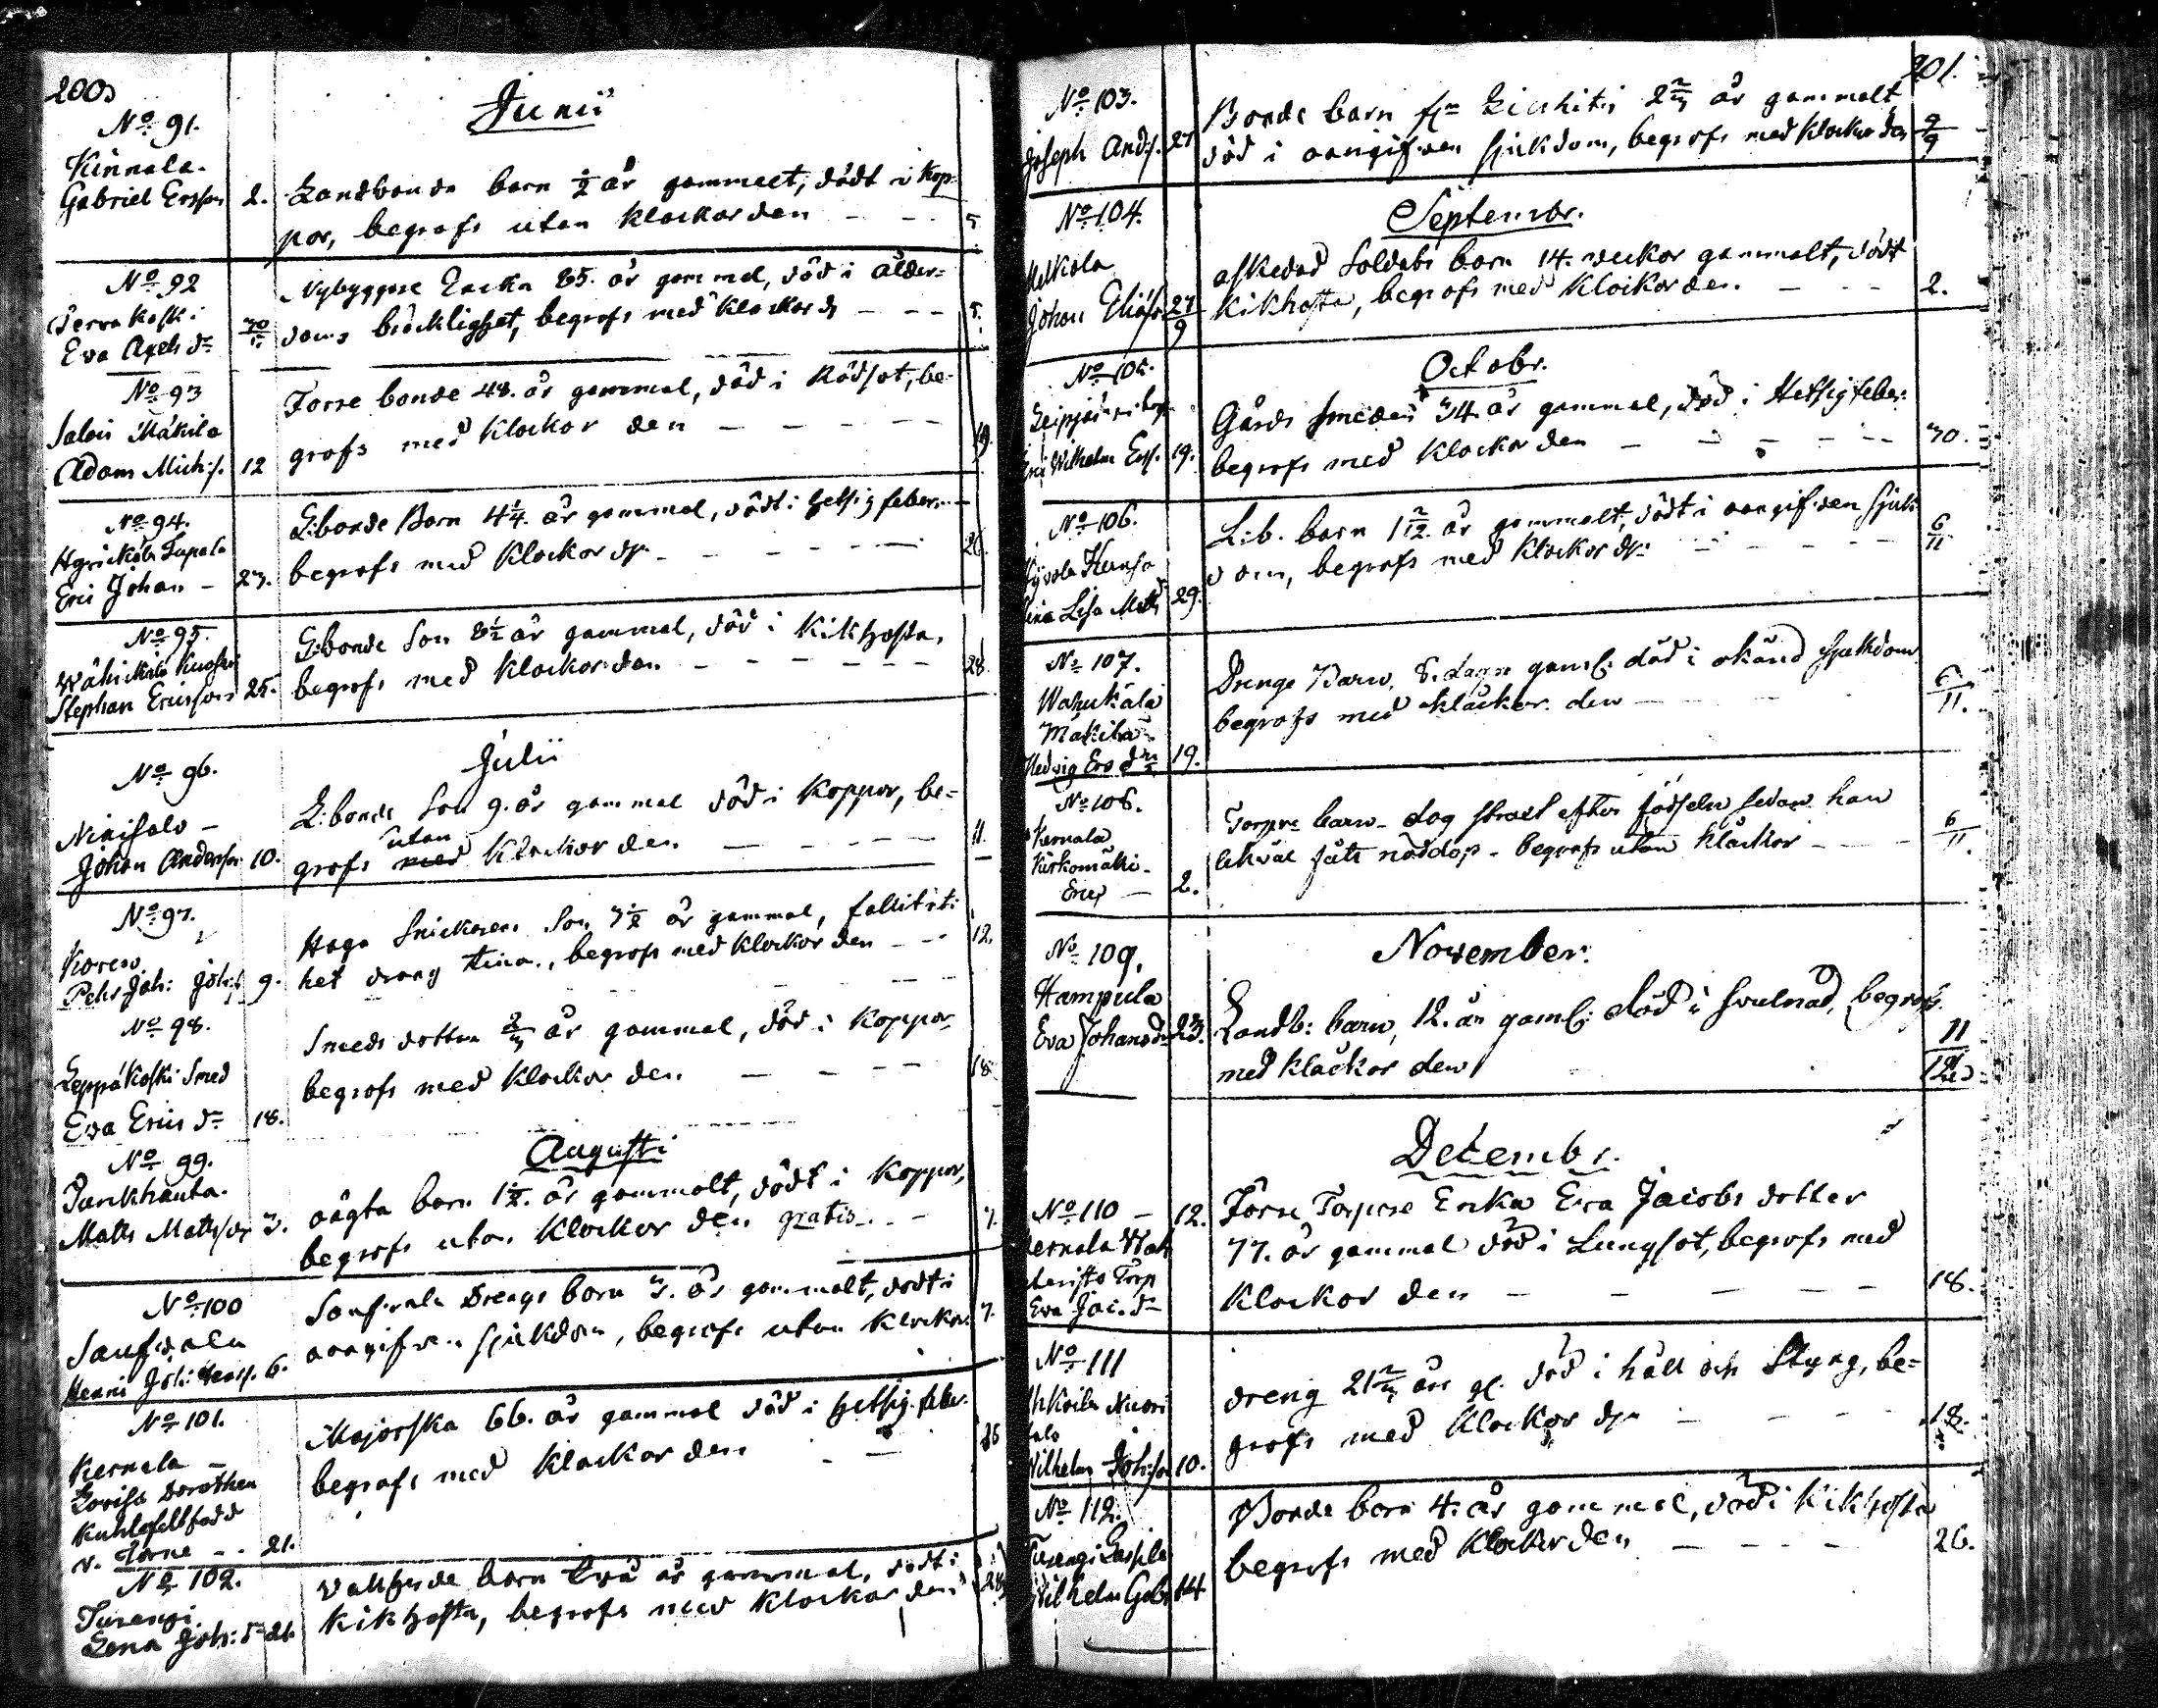 200
Junii
No 91.
Kinnala.
Gabriel Ersson 2. Landbonde barn 1/2 år gammalt, dödt i Kop-
por, begrofs utan klockor den - - 5.
No 92
Nybyggare Encka 85. år gammal, död i ålder-
Terva koski
Eva Axels dr 30 doms bräcklighet, begrofs med klockor d - - - 5.
No 93
Salois Mäkilä
Adam Mich:s. 12
Torre bonde 48. år gammal, död i Rödsot, be-
grofs med klockor den - - - - - 19.
No 94.
Tupala
Eric Johan - 23.
L:bonde Barn 4 1/4. år gammal, dödt i hetsig feber
begrofs med klockor d - - - - 26.
No 95.
Stephan Ericsson 25.
L:bonde Son 8 1/2 år gammal, död i Kikhosta,
begrofs med klockor den - - - - - 28.
Julii
No 96.
Niñisalo -
Johan Andersson 10.
L:bonde Son 9. år gammal död i Koppor, be-
utan
grofs med Klockor den - - - - 11.
No 97.
Pehr Joh: Joh:s 9.
Snickaren Son 7 1/2 år gammal,
het begrofs med klockor den - - 12.
No 98.
Leppäkoski Smed
Eva Erics dr 18.
Smeds dotter år gammal, död i koppor,
begrofs med Klockor den - - - 18.
Augusti
No 99.
Pankhauta.
Matts Mattsson 3.
oägta barn 1 1/2. år gammalt, dödt i Koppor,
begrofs utan Klockor den gratis - - 7.
No 100
Henric Joh: 6.
Drengs barn 3. år gammalt, dödt i
oangifven sjukdom, begrofs utan klockor 7.
No 101.
Kernala -
Lovisa Dorothea
Kuhlefelt född
v. Törne - - 21.
Majorska 66. år gammal död i hetsig feber
begrofs med Klockor den - - 26
No 102.
Turengi
Lena Joh: dr 21.
Vallherde barn två år gammal, dödt i
Kikhosta, begrofs med Klockor den 28
201.
No 103.
Joseph And:s. 27
Bonde barn 2 år gammalt
död i oangifven sjukdom, begrofs med klockor den 9/9
Septembr.
No 104.
Melkola
Johan Eliæ 27/9
afskedad Soldats barn 14. veckor gammalt, dödt
Kikhosta, begrofs med Klockor den. - - - 2.
Octobr.
No 105.
Eric Wilhelm Ers. 19.
Gårds Smeden 34. år gammal, död i Hetsig feber
begrofs med Klockor den - - - - - 30.
No 106.
Lisa Matts 29.
L:b. barn 1 år gammalt, dödt i oangifven sjuk-
dom, begrofs med Klockor d - - - - - 6/11
No 107.
Mäkilä
Hedvig Ers dr 19.
Drengs Barn, 8. dagar gaml: död i okänd sjukdom
begrofs med klåckor den - - 6/11.
No 108.
Kernala
Kirkomäki -
Eric - 2.
Torpare barn - dog strax efter födseln sedan han
likväl fått nöddop - begrofs utan klåckor - - - 6/11.
November.
No 109.
Hampula
Eva Johansdr 23.
Landb: barn, 12. år gaml: död i svulnad, begrofs.
med klåckor den 11
12
Decembr.
No 110 - 12.
Torp
Eva Jac. dr
Torpare Enka Eva Jacobs dotter
77. år gammal död i Lungsot, begrofs med
Klockor den - - - - - 18.
No 111
Nuori
salo
Wilhelm Joh:son 10.
dreng 21 år gl. död i håll och Styng, be-
grofs med Klockor d - - - - 18.
No 112.
Turengi
Wilhelm Gabr 14
Bonde barn 4. år gammal, död i Kikhosta
begrofs med Klockor den - - - - 26.